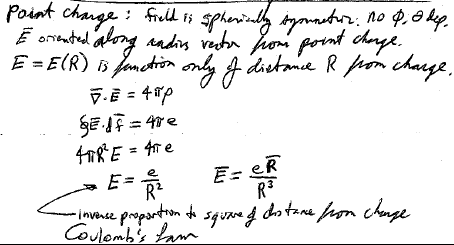 Point charge: field is spherically symmetric. no φ, θ dep.
E̅ oriented along radius vector from point charge.
E = E(R) is function only of distance R from charge.
∇̅·E̅ = 4πρ
∮E̅·df̅ = 4πe
4πR²E = 4πe
E = e/R²   E̅ = eR̅/R³
inverse proportion to square of distance from charge
Coulomb's Law